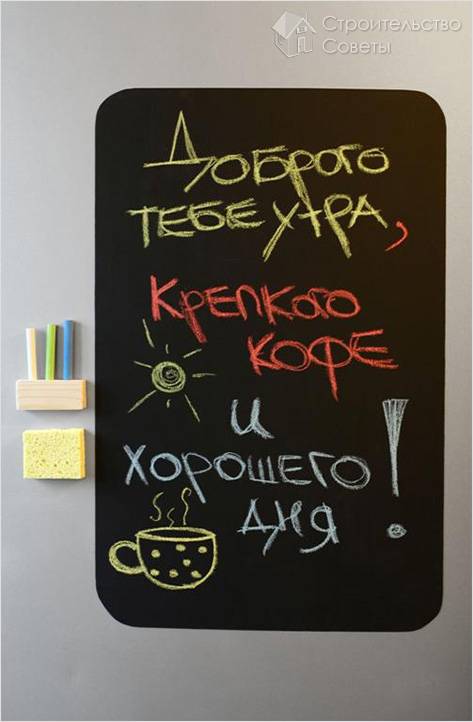 Строительство
Советы
Доброго
тебе утра,
крепкого
кофе
и
хорошего
дня!